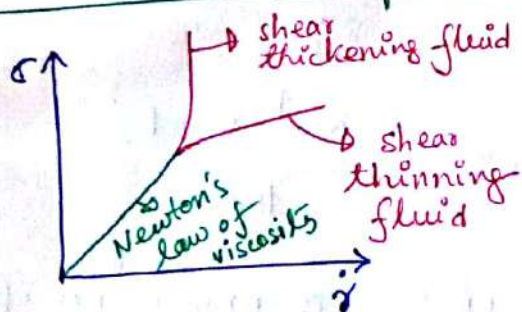 shear
thickening fluid
σ
shear
thinning
fluid
Newton's
law of
viscosity
γ̇